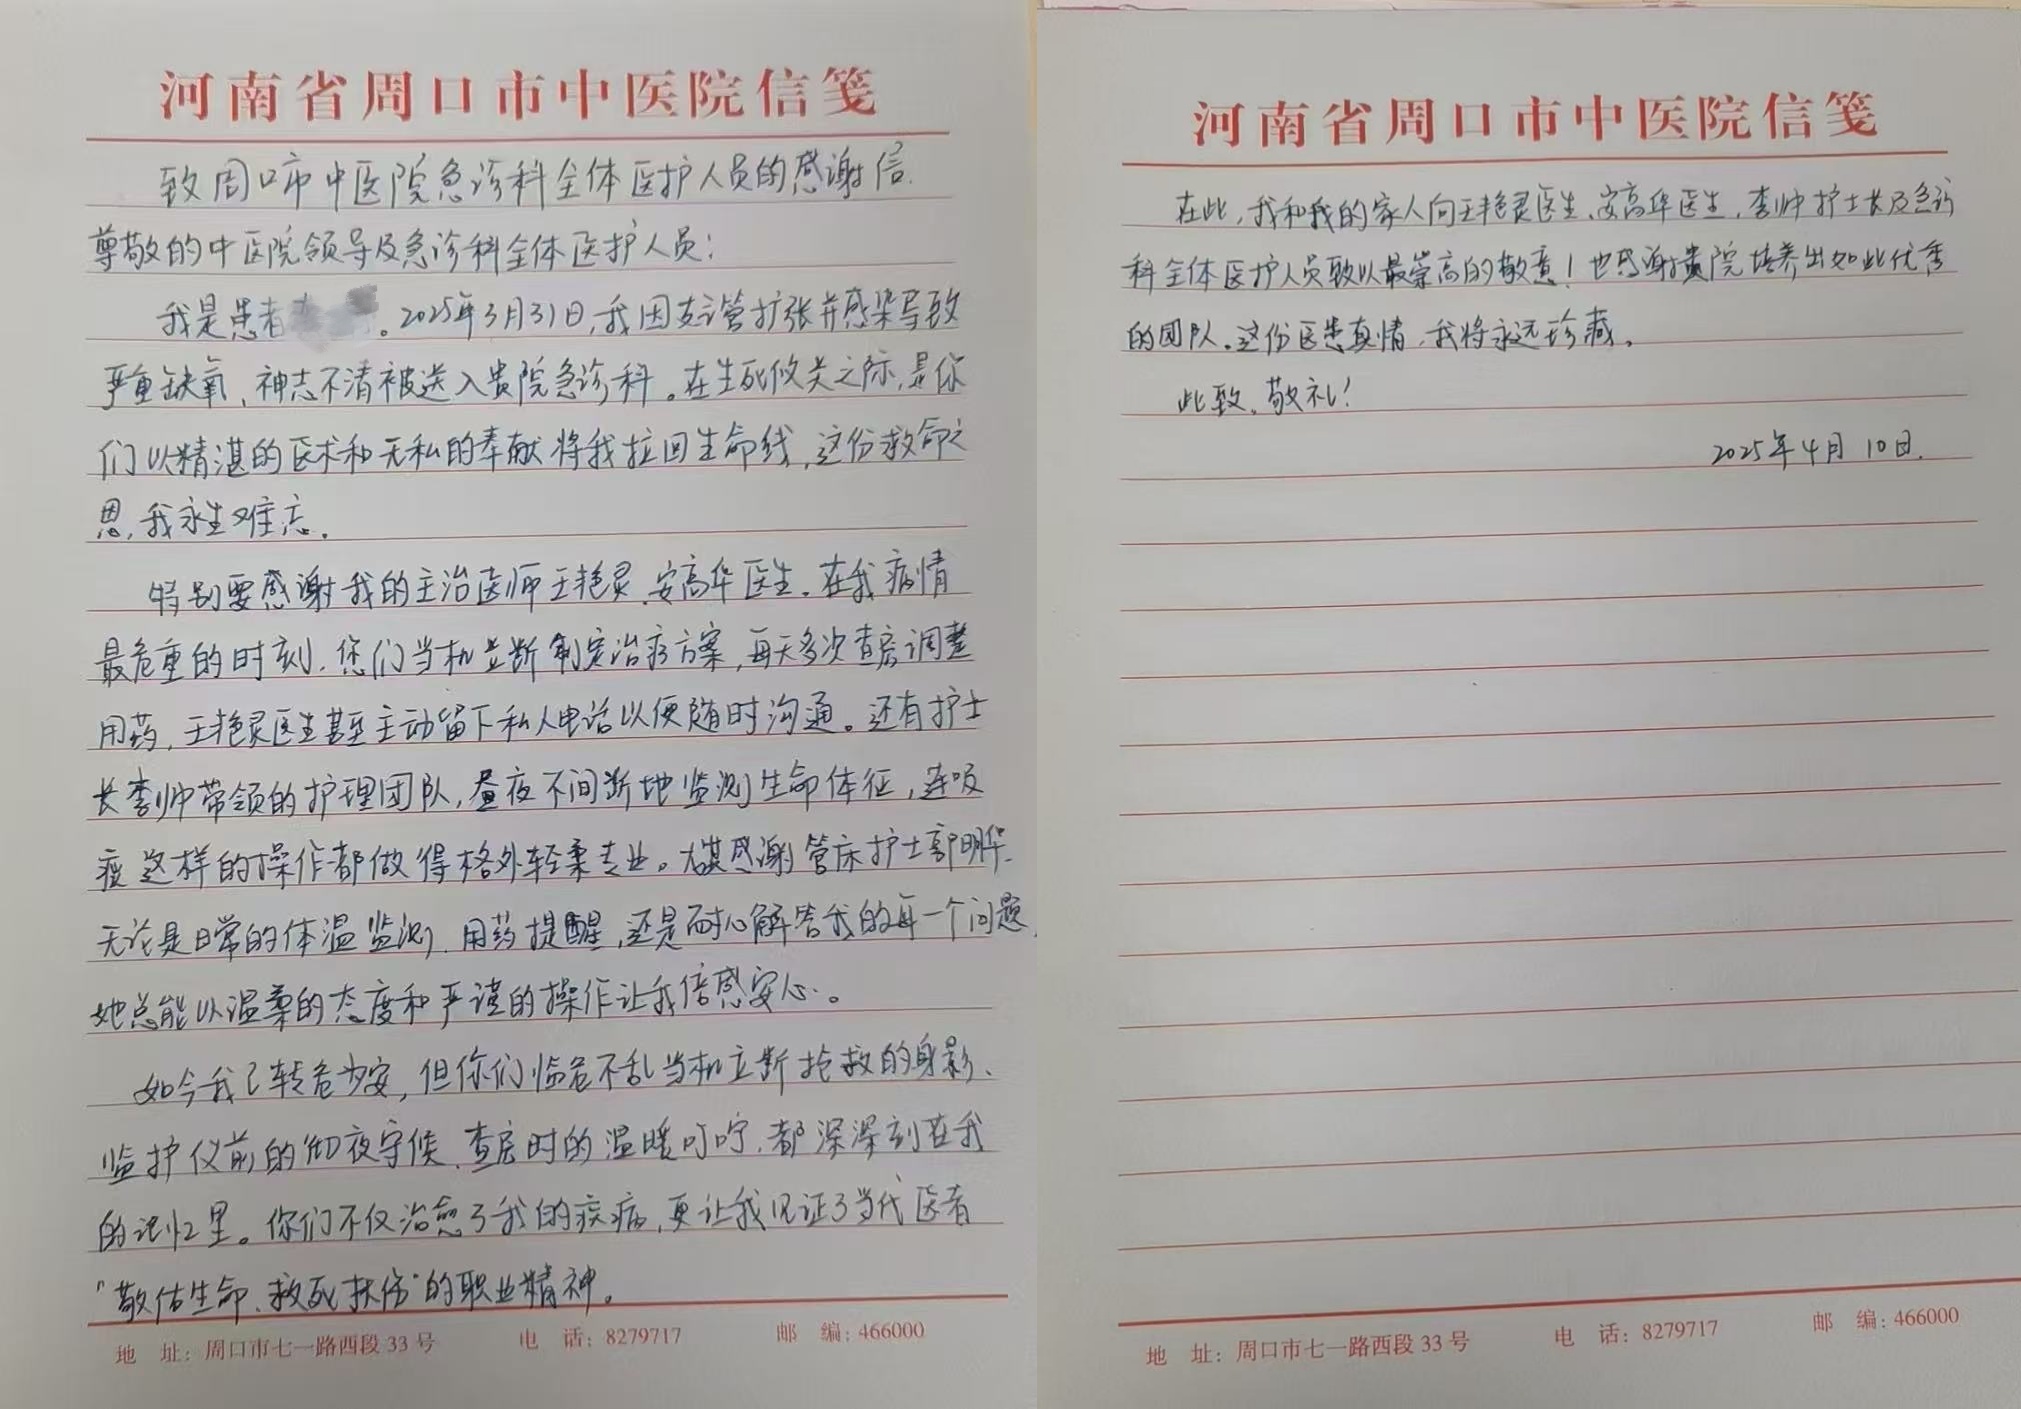 河南省周口市中医院信笺
致周口市中医院急诊科全体医护人员的感谢信.
尊敬的中医院领导及急诊科全体医护人员:
我是患者。2025年3月31日,我因支气管扩张并感染导致
严重缺氧、神志不清被送入贵院急诊科。在生死攸关之际,是你
们以精湛的医术和无私的奉献将我拉回生命线,这份救命之
恩,我永生难忘.
特别要感谢我的主治医师王艳灵、安高华医生.在我病情
最危重的时刻.您们当机立断制定治疗方案,每天多次查房调整
用药,王艳灵医生甚至主动留下私人电话以便随时沟通。还有护士
长李帅带领的护理团队,昼夜不间断地监测生命体征,连吸
痰这样的操作都做得格外轻柔专业。尤其感谢管床护士郭明华.
无论是日常的体温监测、用药提醒,还是耐心解答我的每一个问题,
她总能以温柔的态度和严谨的操作让我倍感安心.。
如今我已转危为安,但你们临危不乱当机立断抢救的身影、
监护仪前的彻夜守候、查房时的温暖叮咛,都深深刻在我
的记忆里。你们不仅治愈了我的疾病,更让我见证了当代医者
"敬佑生命、救死扶伤"的职业精神。
地 址: 周口市七一路西段33号 电 话: 8279717 邮 编: 466000
河南省周口市中医院信笺
在此,我和我的家人向王艳灵医生、安高华医生,李帅护士长及急诊
科全体医护人员致以最崇高的敬意!也感谢贵院培养出如此优秀
的团队.这份医患真情,我将永远珍藏。
此致,敬礼!
2025年4月10日.
地 址: 周口市七一路西段33号 电 话: 8279717 邮 编: 466000